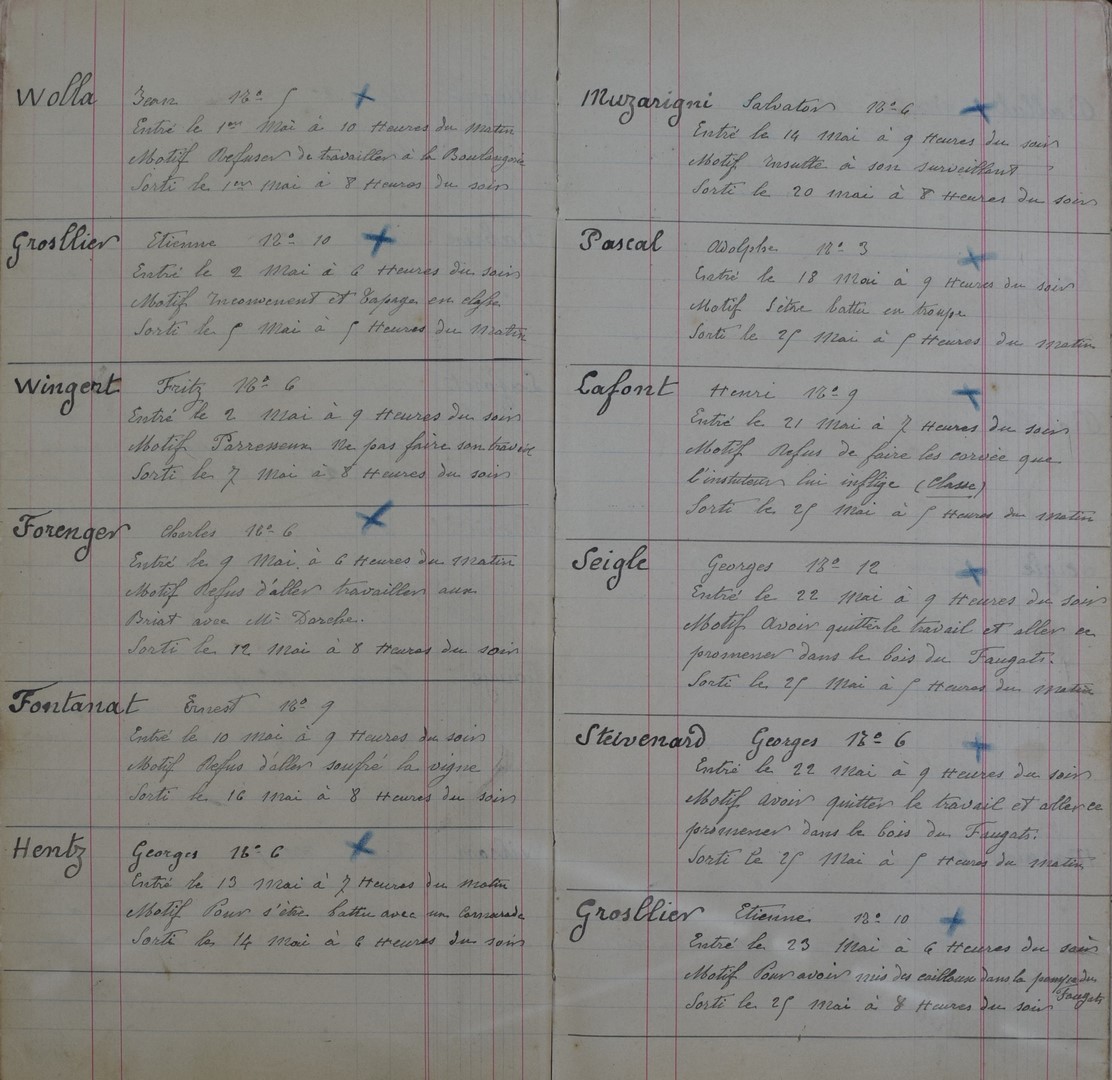 Wolla Jean No 5
Entré le 1er Mai à 10 Heures du Matin
Motif Refuser de travailler à la Boulangerie
Sorti le 1er Mai à 8 Heures du soir
Grosllier Etienne No 10
Entré le 2 Mai à 6 Heures du soir
Motif Inconvenent et Tapage en classe
Sorti le 5 Mai à 5 Heures du Matin
Wingert Fritz No 6
Entré le 2 Mai à 9 Heures du soir
Motif Parresseux ne pas faire son travail
Sorti le 7 Mai à 8 Heures du soir
Forenger Charles No 6
Entré le 9 Mai à 6 Heures du Matin
Motif Refus d'aller travailler aux
Briat avec Mr Darche.
Sorti le 12 Mai à 8 Heures du soir
Fontanat Ernest No 9
Entré le 10 mai à 9 Heures du soir
Motif Refus d'aller soufré la vigne
Sorti le 16 mai à 8 Heures du soir
Hentz Georges No 6
Entré le 13 Mai à 7 Heures du Matin
Motif Pour s'être battu avec un Comarade
Sorti le 14 mai à 6 Heures du soir
Muzarigni Salvator No 6
Entré le 14 Mai à 9 Heures du soir
Motif Insulte à son surveillant
Sorti le 20 mai à 8 Heures du soir
Pascal Adolphe No 3
Entré le 18 Mai à 9 Heures du soir
Motif S'être battu en troupe
Sorti le 25 Mai à 5 Heures du Matin
Lafont Henri No 9
Entré le 21 Mai à 7 Heures du soir
Motif Refus de faire les corvée que
l'instituteur lui inflige (Classe)
Sorti le 25 Mai à 5 Heures du Matin
Seigle Georges No 12
Entré le 22 Mai à 9 Heures du soir
Motif Avoir quitter le travail et aller ce
promener dans le bois du Faugats.
Sorti le 25 Mai à 5 Heures du Matin
Steivenard Georges No 6
Entré le 22 Mai à 9 Heures du soir
Motif avoir quitter le travail et aller ce
promener dans le bois du Faugats.
Sorti le 25 Mai à 5 Heures du Matin
Grosllier Etienne No 10
Entré le 23 Mai à 6 Heures du soir
Motif Pour avoir mis des cailloux dans la du
Faugats
Sorti le 25 Mai à 8 Heures du soir